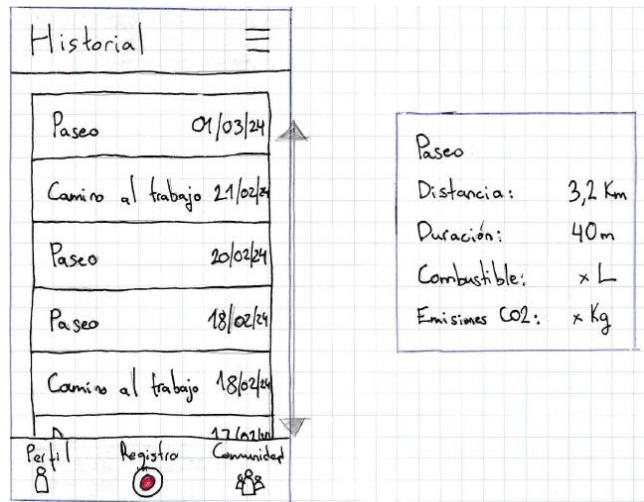 Historial
Paseo 01/03/24
Camino al trabajo 21/02/24
Paseo 20/02/24
Paseo 18/02/24
Camino al trabajo 18/02/24
Perfil Registro Comunidad
Paseo
Distancia: 3,2 Km
Duración: 40m
Combustible: x L
Emisiones CO2: x Kg